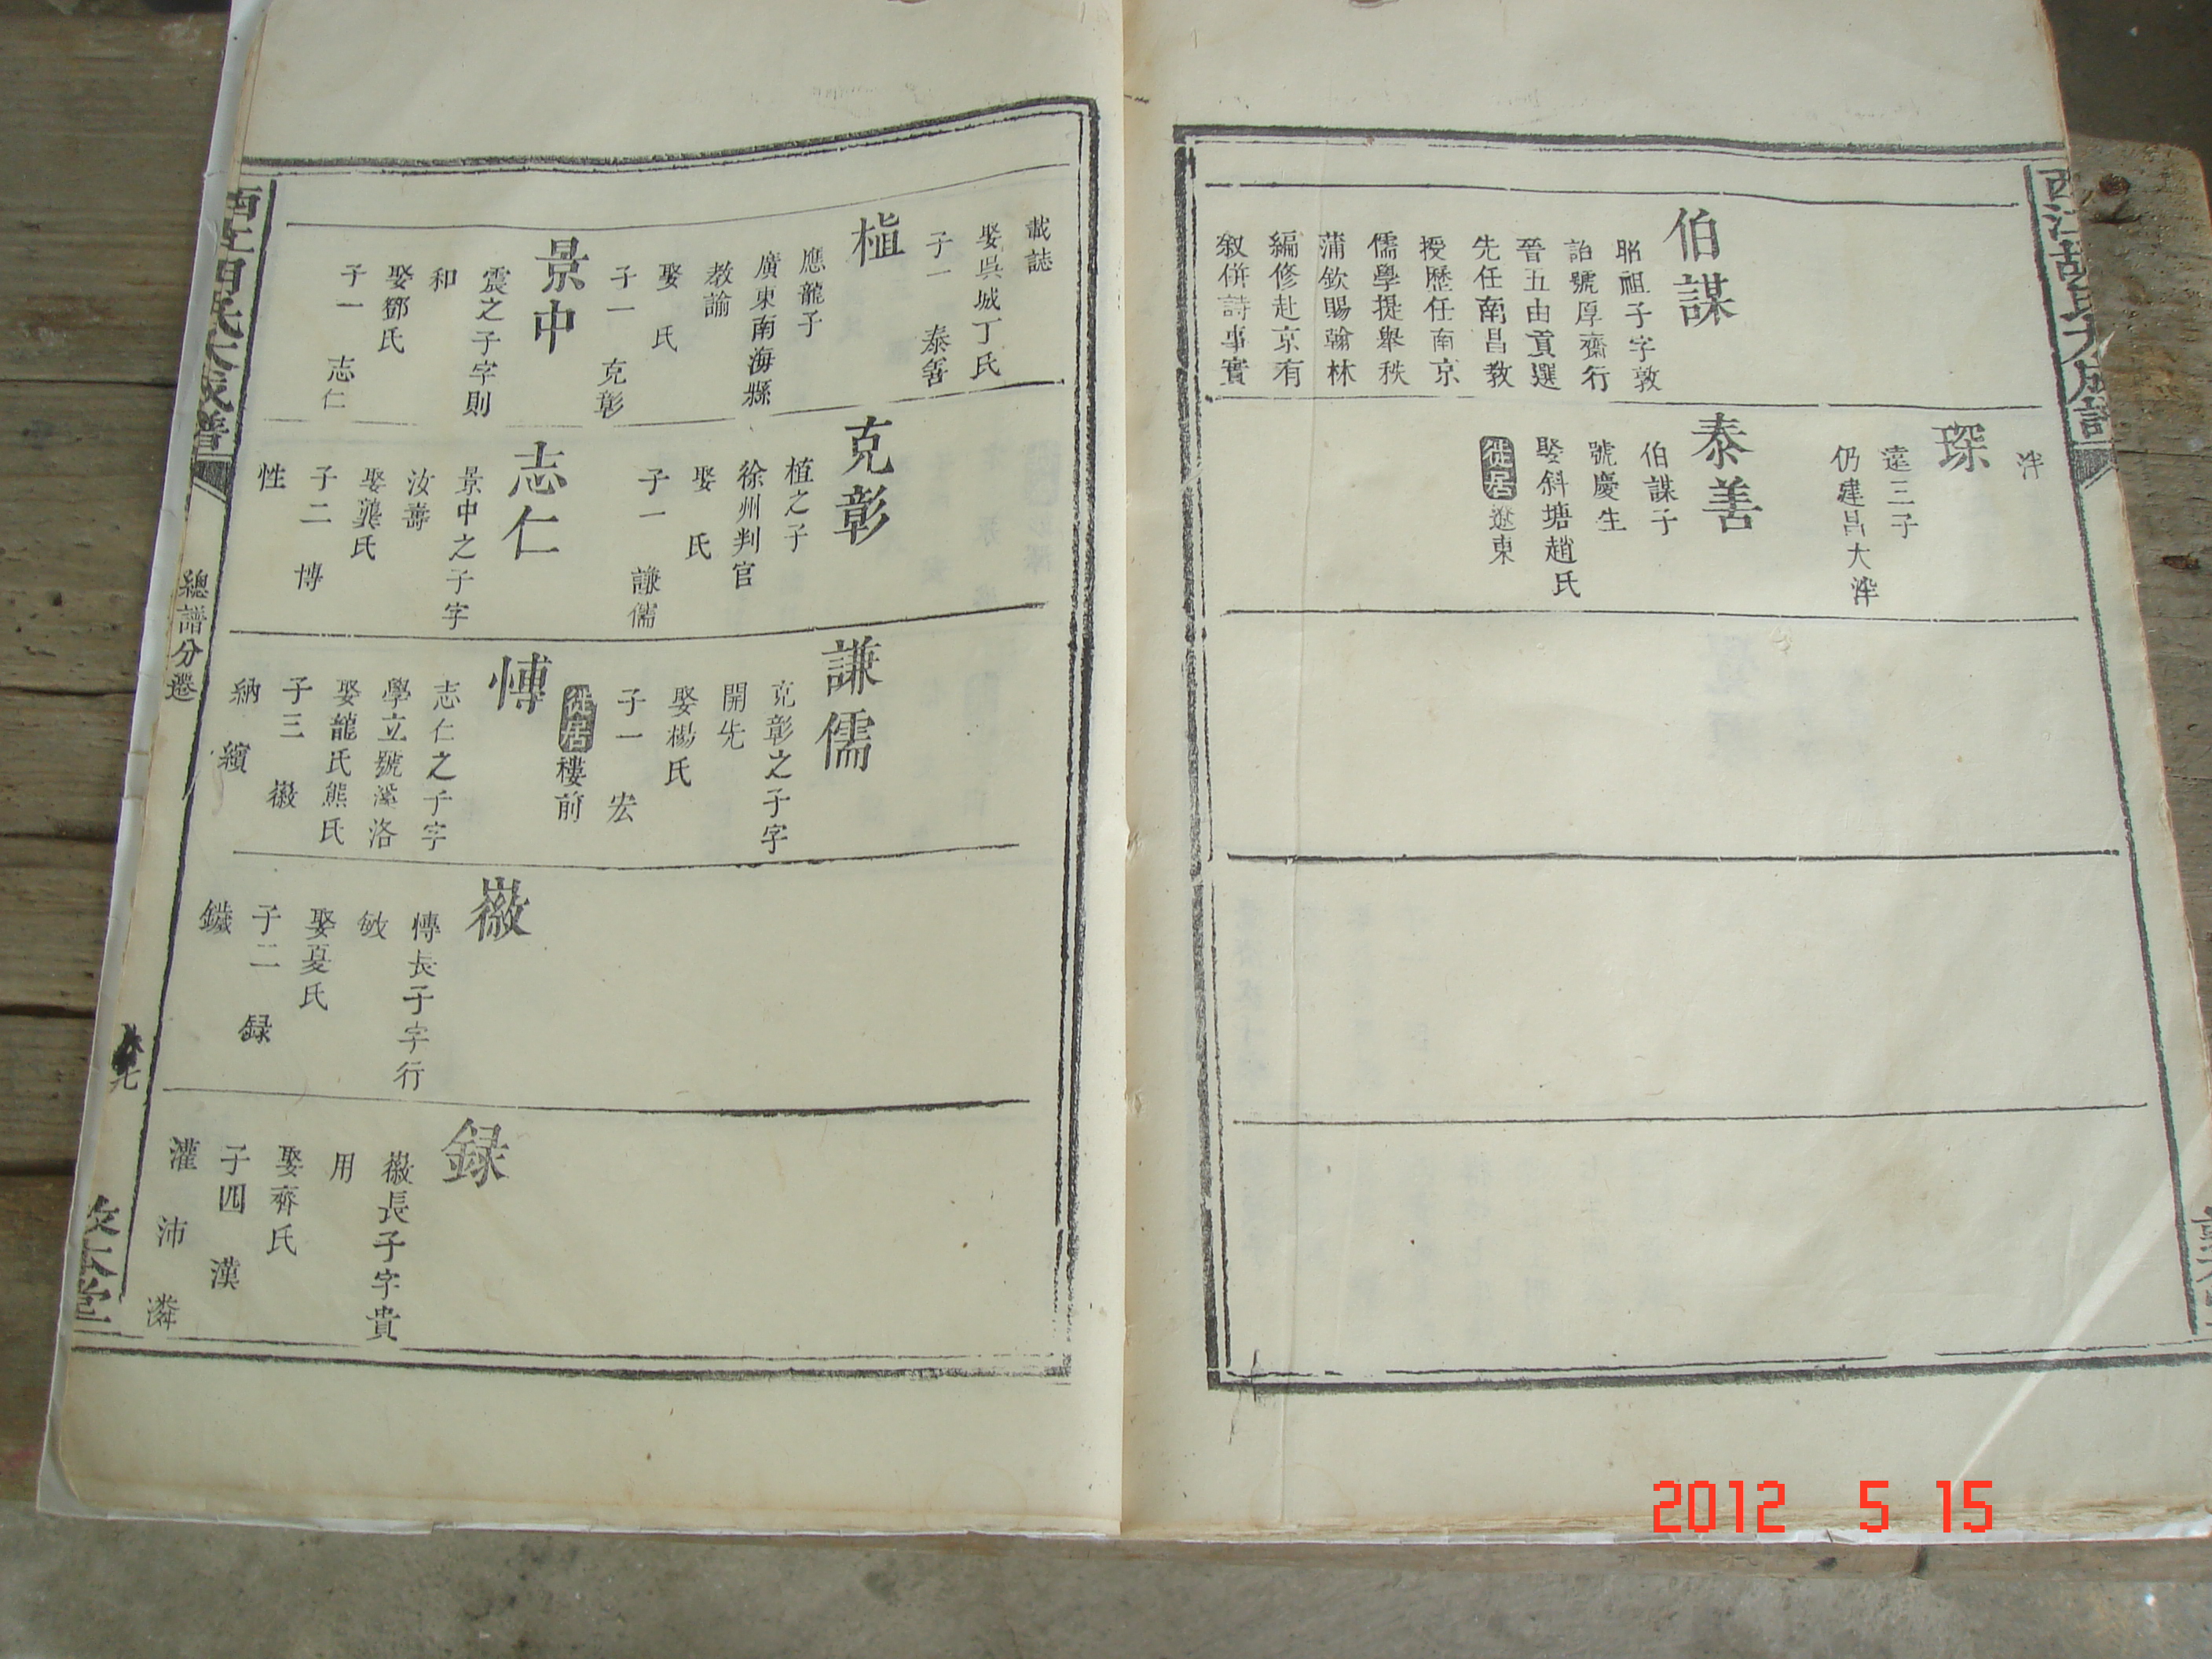 伯謀
昭祖子字敦
詒號厚齋行
晉五由貢選
先任南昌教
授歷任南京
儒學提舉秩
蒲欽賜翰林
編修赴京有
敘併詩事實
泮
琛
遠三子
仍建昌大泮
泰善
伯謀子
號慶生
娶斜塘趙氏
徙居遼東
載誌
娶吳城丁氏
子一 泰善
植
應龍子
廣東南海縣
教諭
娶 氏
子一 克彰
景中
震之子字則
和
娶鄧氏
子一 志仁
克彰
植之子
徐州判官
娶 氏
子一 謙儒
志仁
景中之子字
汝壽
娶龔氏
子二 博
性
謙儒
克彰之子字
開先
娶楊氏
子一 宏
徙居樓前
博
志仁之子字
學立號
娶龍氏熊氏
子三 徽
納 繽
徽
博長子字行
敏
娶夏氏
子二 録
鐵
録
徽長子字貴
用
娶齊氏
子四 漢
灌 沛 潾
總譜分遷
2012 5 15